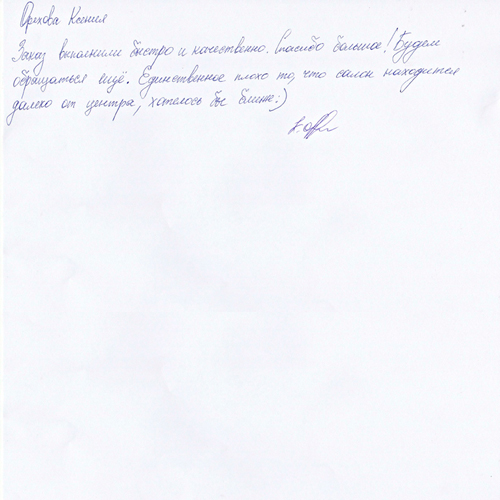 Орехова Ксения
Заказ выполнили быстро и качественно. Спасибо большое! Будем
обращаться ещё. Единственное плохо то, что салон находится
далеко от центра, хотелось бы ближе:)